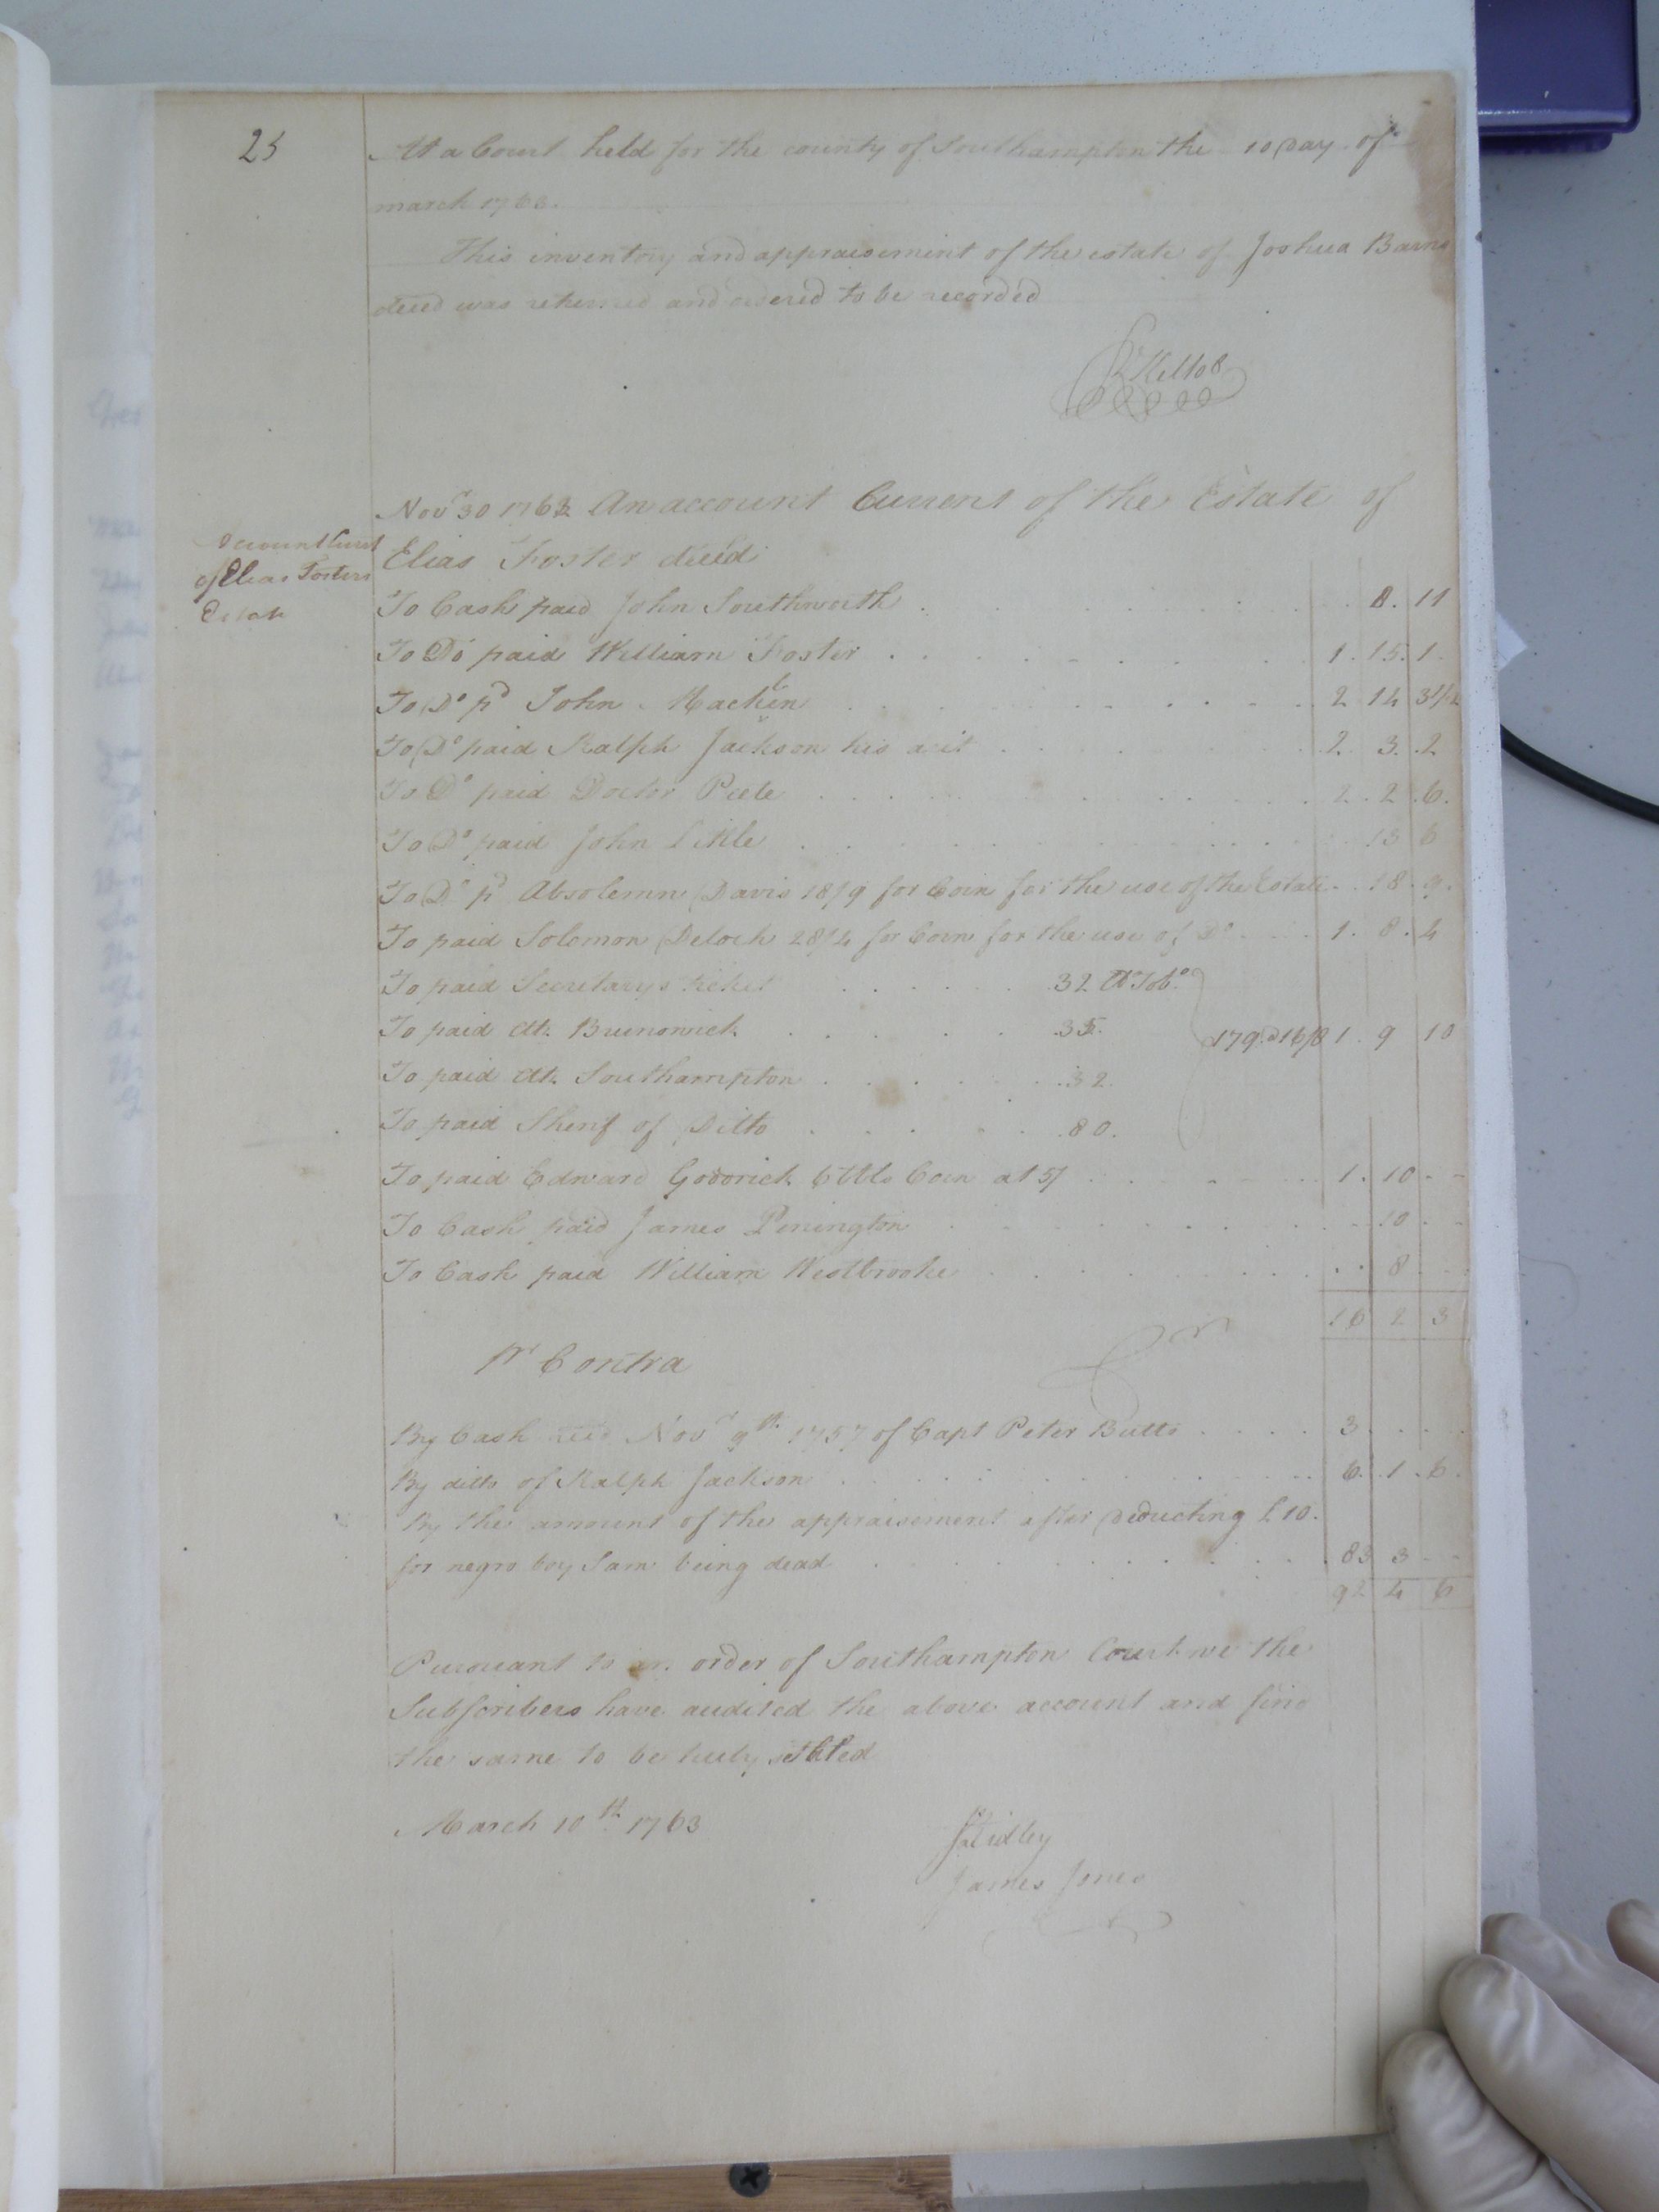 25
At a Court held for the county of Southampton the 10 Day of
march 1763.
This inventory and appraisement of the estate of Joshua Barn
deced was returned and ordered to be recorded
Nov.r 30 1762 An account Current of the Estate of
Elias Foster decd
Account Curt
of Elias Fosters
Estate
To Cash paid John Southworth . . . 8. 11
To Do paid William Foster . . . 1. 15. 1
To Do pd John Macklin . . . 2 14 3 1/2
To Do paid Ralph Jackson his acct . . . 2. 3. 2
To Do paid Doctor Peete . . . 2. 2. 6.
To Do paid John Little . . . 13 6
To Do pd Absolemn Davis 18/9 for Corn for the use of the Estate. . 18. 9.
To paid Solomon Deloch 28/4 for Corn for the use of Do . . . 1. 8. 4
To paid Secretarys ticket . . . 32 lb Tobo
To paid Clk. Brunswick . . . 35. 179. a 16/8 1. 9 10
To paid Clk. Southampton . . . 32.
To paid Sherif of Ditto . . . 80.
To paid Edward Goodrich 6 bbls Corn at 5/ . . . 1. 10 - -
To Cash paid James Pinington . . . 10 - -
To Cash paid William Westbrooke . . . 8 - -
16 2 3
Pr Contra
By Cash recd Novr 9th 1757 of Capt Peter Butts . . . 3 . . .
By ditto of Ralph Jackson . . . 6. 1. 6.
By the amount of the appraisement after Deducting £10.
for negro boy Sam being dead . . . 83 3 - -
92 4 6
Pursuant to an order of Southampton Court we the
Subscribers have audited the above account and find
the same to be truly settled
March 10th 1763
Ridley
James Jones